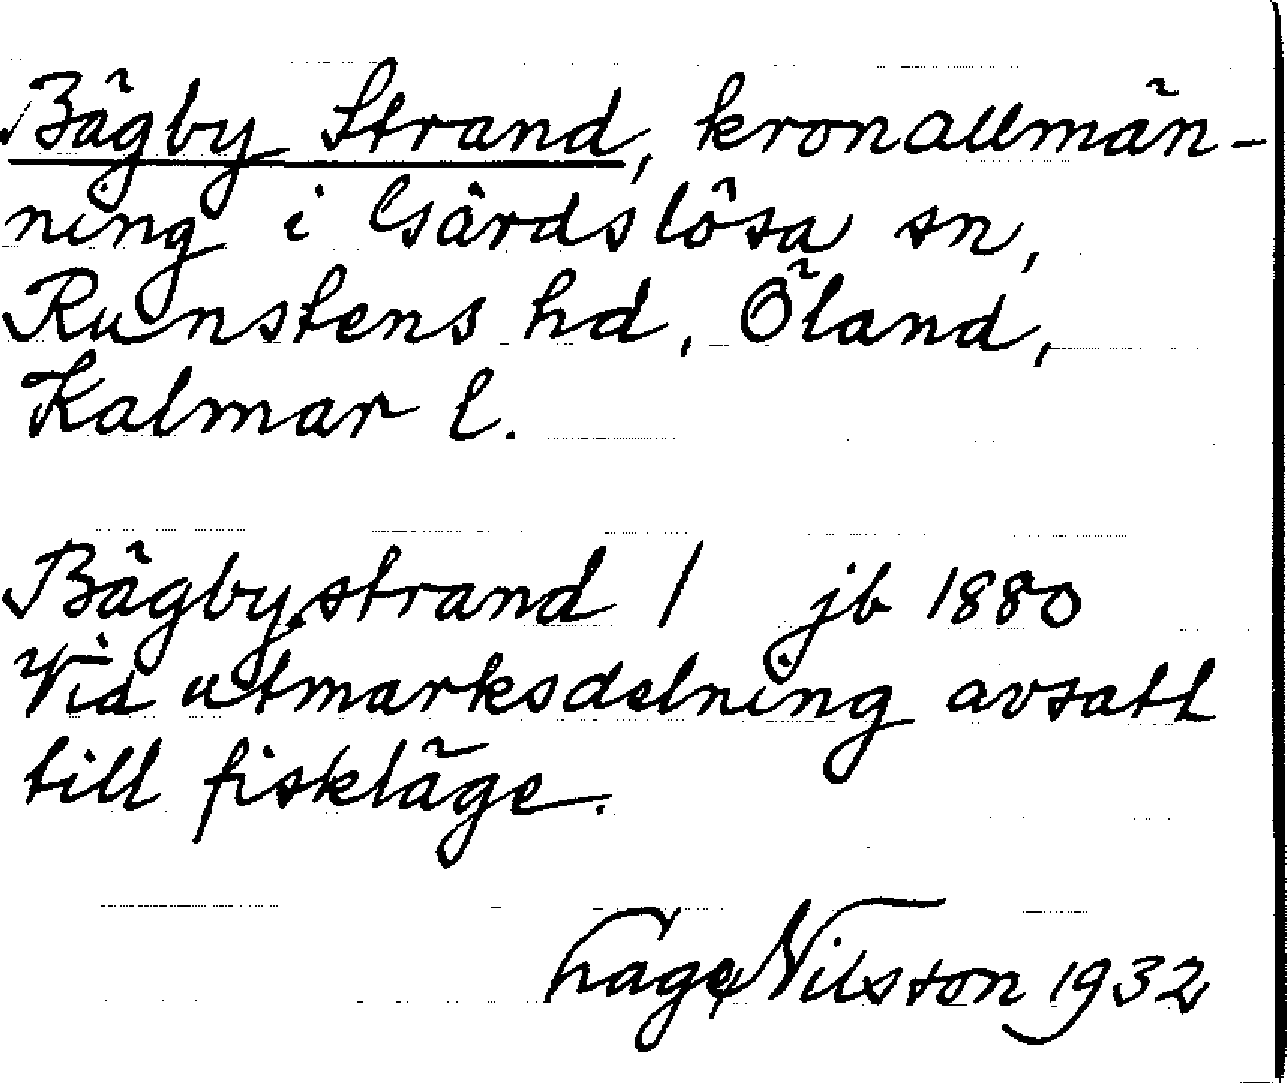 Bägby Strand, kronallmän-
ning i Gärdslösa sn,
Runstens hd, Öland,
Kalmar l.
Bägby strand 1 jb 1880
Vid utmarksdelning avsatt
till fiskläge.
Hage Nilsson 1932